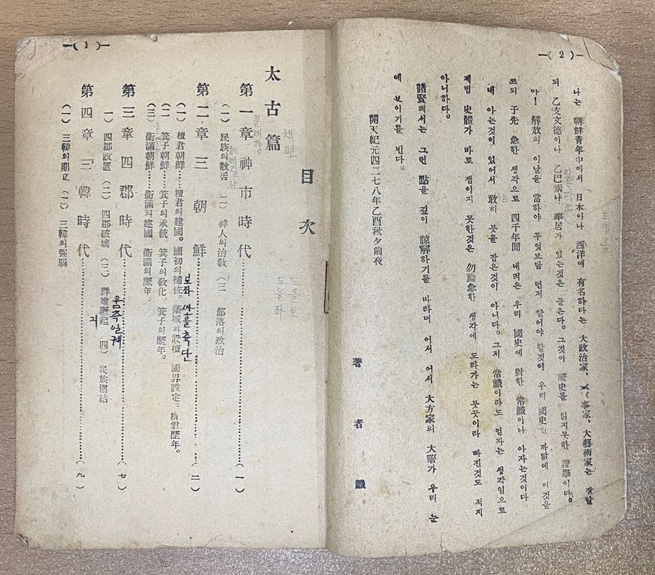 —( 2 )—
나는 朝鮮青年中에서 日本이나 西洋에 有名하다는 大政治家、事家、大藝術家는 잘알
되 乙支文德이나 乙巴素나 率居가 있는것은 몰은다。그것이 歷史를 읽지못한 證擧이다。
아! 解放의 이날을 當하야 무엇보담 먼저 알어야할것이 우리 國史인 까닭에 이것을
쓰되 于先 急한 생각으로 四千年間 내려온 우리 國史에 對한 常識이나 아자는것이다
내 아는것이 있어서 敢히 붓을 잡은것이 아니다。그저 常識이라도 얻자는 생각임으로
제법 史體가 바로 잡이지 못한것은 勿論急한 생각에 도라가는 붓끗이라 빠진것도 적지
아니하다。
諸賢께서는 그런 點을 깊이 諒解하기를 바라며 어서 어서 大方家의 大著가 우리 눈
에 보이기를 빈다。
開天紀元四二七八年乙酉秋夕前夜
著 者 識
—( 1 )—
目 次
太古篇
第一章 神市時代………(一)
(一) 民族의散居 (二) 神人의治敎 (三) 部落의政治
第二章 三朝鮮………(二)
(一) 檀君朝鮮……檀君의建國。國初의補佐。築城과設壇。國界設定。檀君歷年。
보좌 싸을축 단
(二) 箕子朝鮮……箕子의承統 箕子의敎化 箕子의歷年。
(三) 衛滿朝鮮……衛滿의建國 衛滿의歷年。
第三章 四郡時代………(七)
(一) 四郡設置 (二) 四郡破壞 (三) 群雄崛起 (四) 民族團結
第四章 三韓時代………(九)
(一) 三韓의鼎立 (二) 三韓의强弱